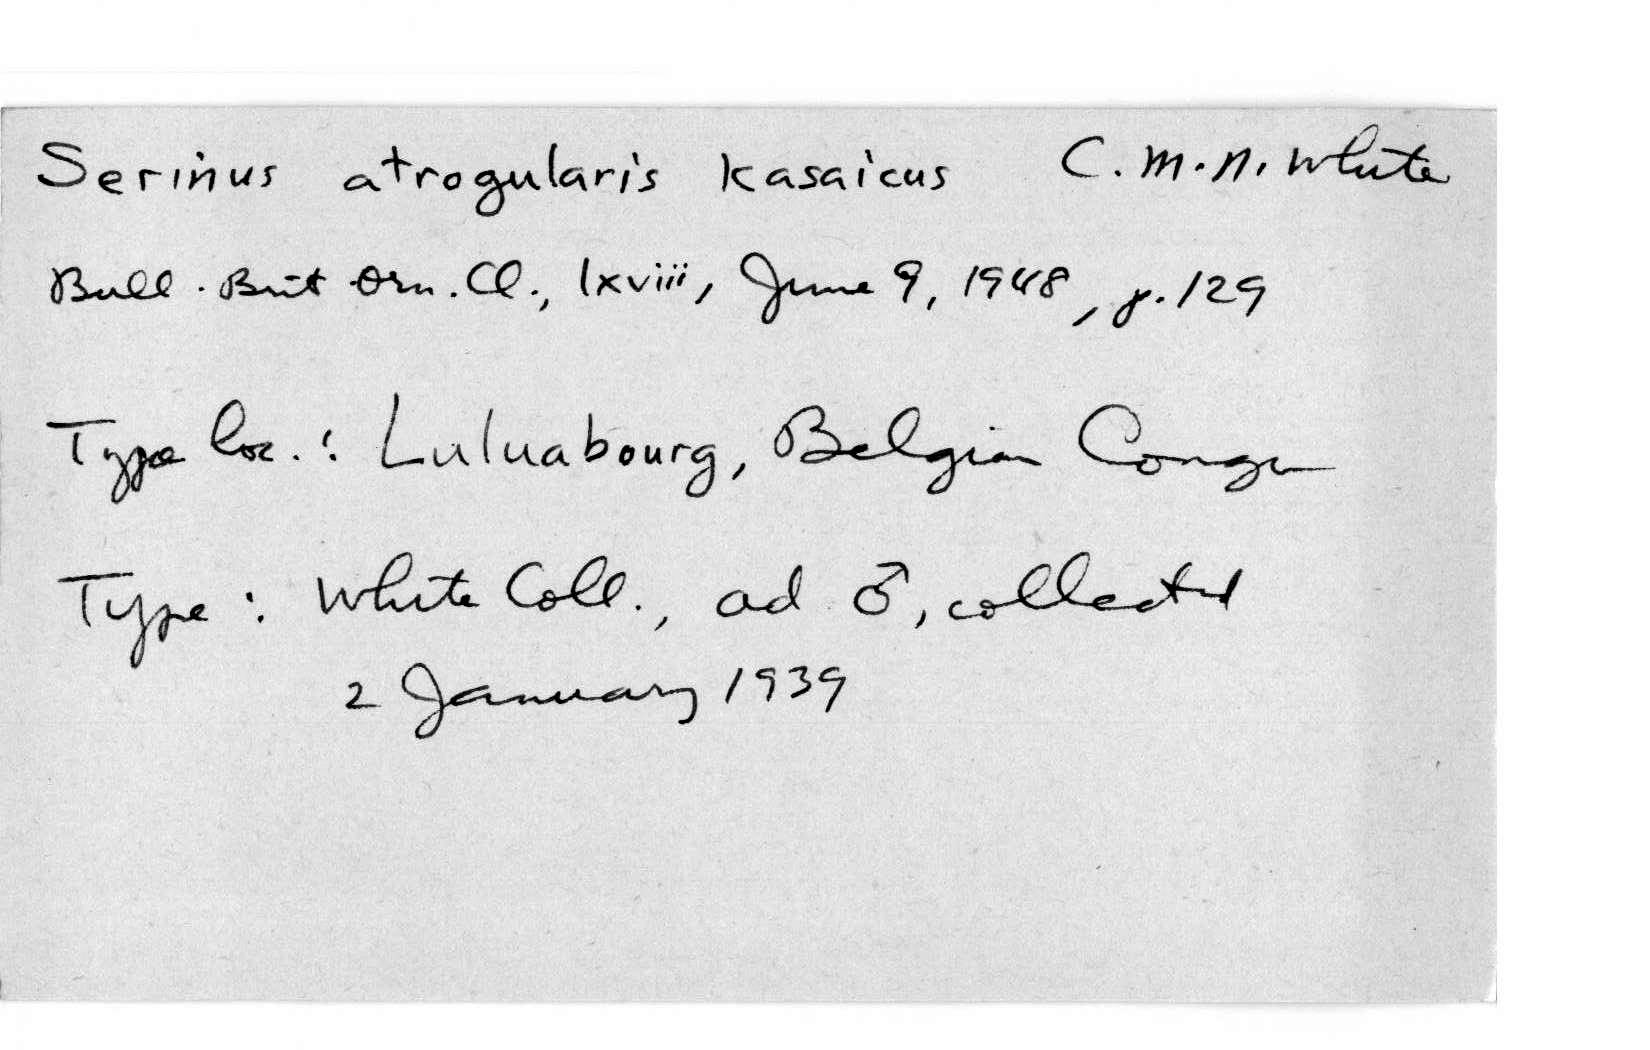 Serinus atrogularis kasaicus C.M.N. White
Bull. Brit Orn. Cl., lxviii, June 9, 1948, p. 129
Type loc.: Luluabourg, Belgian Congo
Type: White Coll., ad ♂, collected
2 January 1939